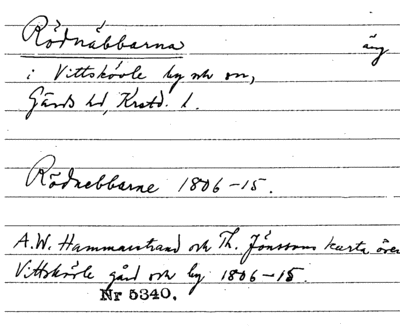 Rödnäbbarna äng
i Vittskövle by och sn,
Gärds hd, Krstd. l.
Rödnebbarne 1806-15.
A.W. Hammarstrand och Th. Jönssons karta över
Vittskövle gård och by 1806-15.
Nr 5340.